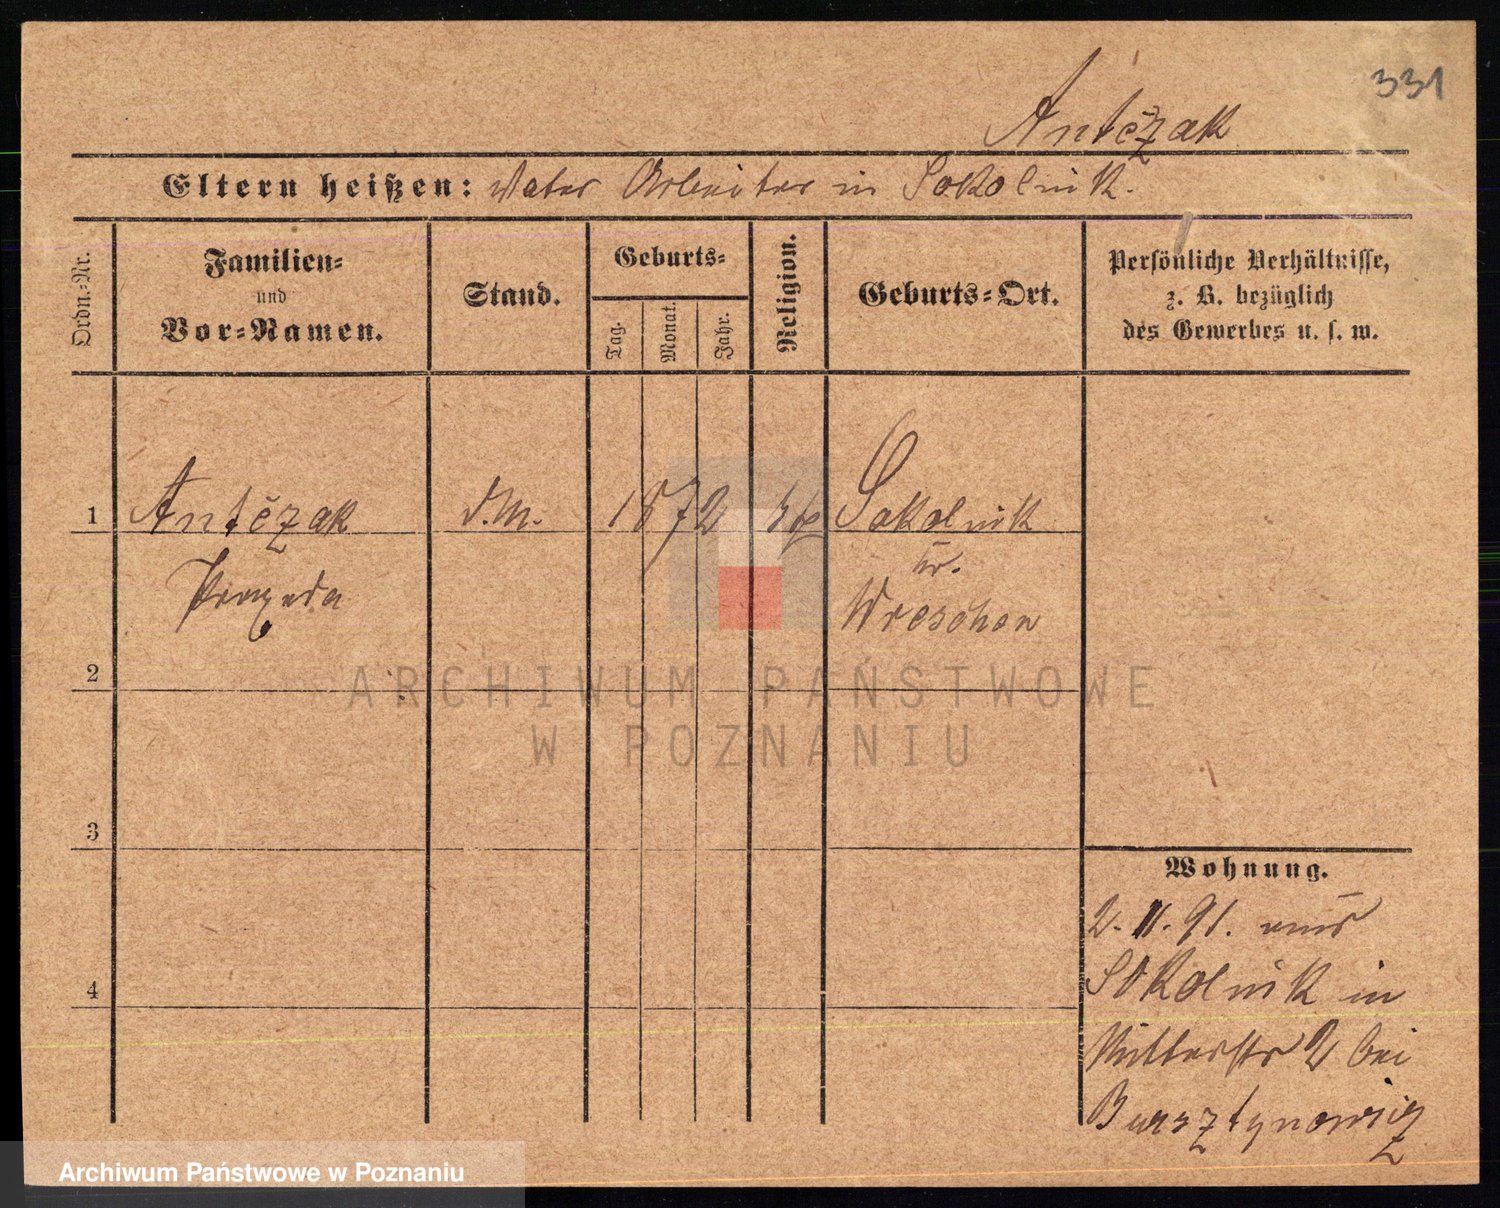 331
Antčzak
Eltern heißen: Vater Arbeiter in Sokolnik.
Ordn.-Nr.
Familien-
und
Vor-Namen.
Stand.
Geburts-
Tag.
Monat.
Jahr.
Religion.
Geburts-Ort.
Persönliche Verhältnisse,
z. B. bezüglich
des Gewerbes u. s. w.
1
Antčzak
d. M.
1872
kth
Sokolnik
Kr.
Wreschen
2
3
4
Wohnung.
2. 11. 91. aus
Sokolnik in
Ritterstr 2 bei
Bursztynowicz
ARCHIWUM PAŃSTWOWE
W POZNANIU
Archiwum Państwowe w Poznaniu